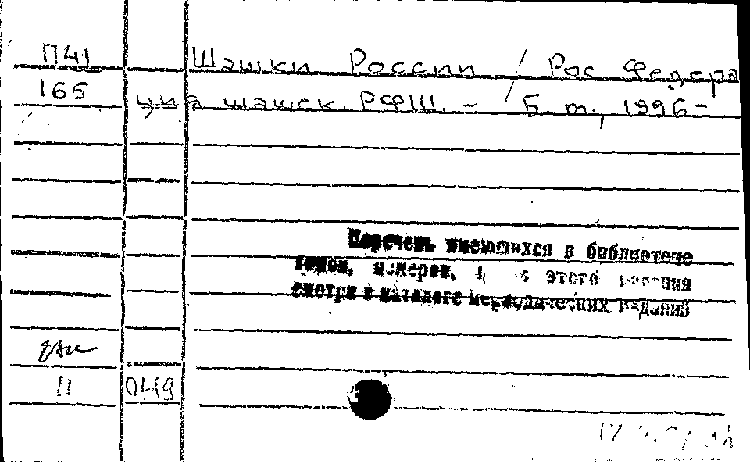 П41 Шашки России / Рос Федера
165 ция шашек РФШ. - Б. м., 1996-
Перечень имеющихся в библиотеке
томов, номеров, этого издания
смотри в каталоге периодических изданий
П 0449